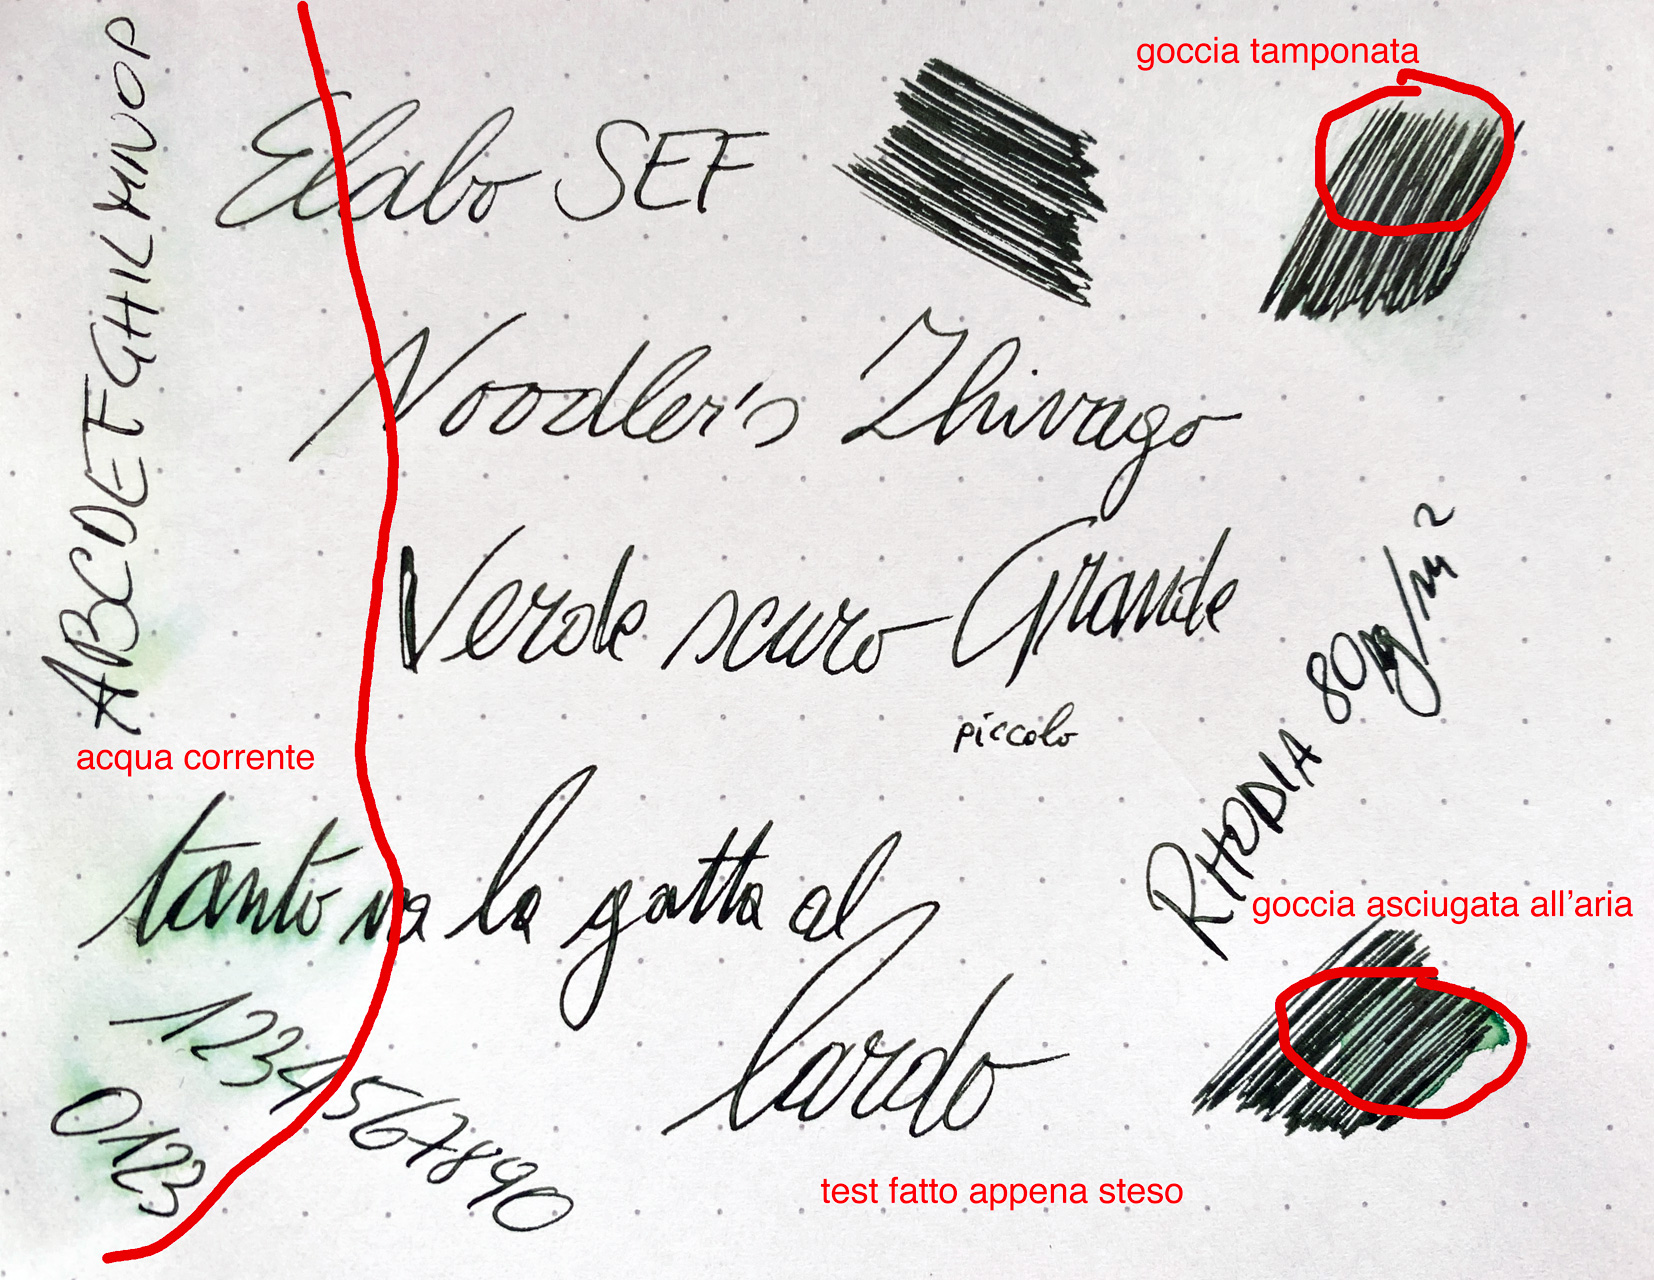 goccia tamponata
ABCDEFGHILMNOP
Elabo SEF
Noodler's Zhivago
Verde scuro Grande
piccolo
RHODIA 80mg/m²
acqua corrente
tanto va la gatta al
lardo
goccia asciugata all'aria
1234567890
0123
test fatto appena steso